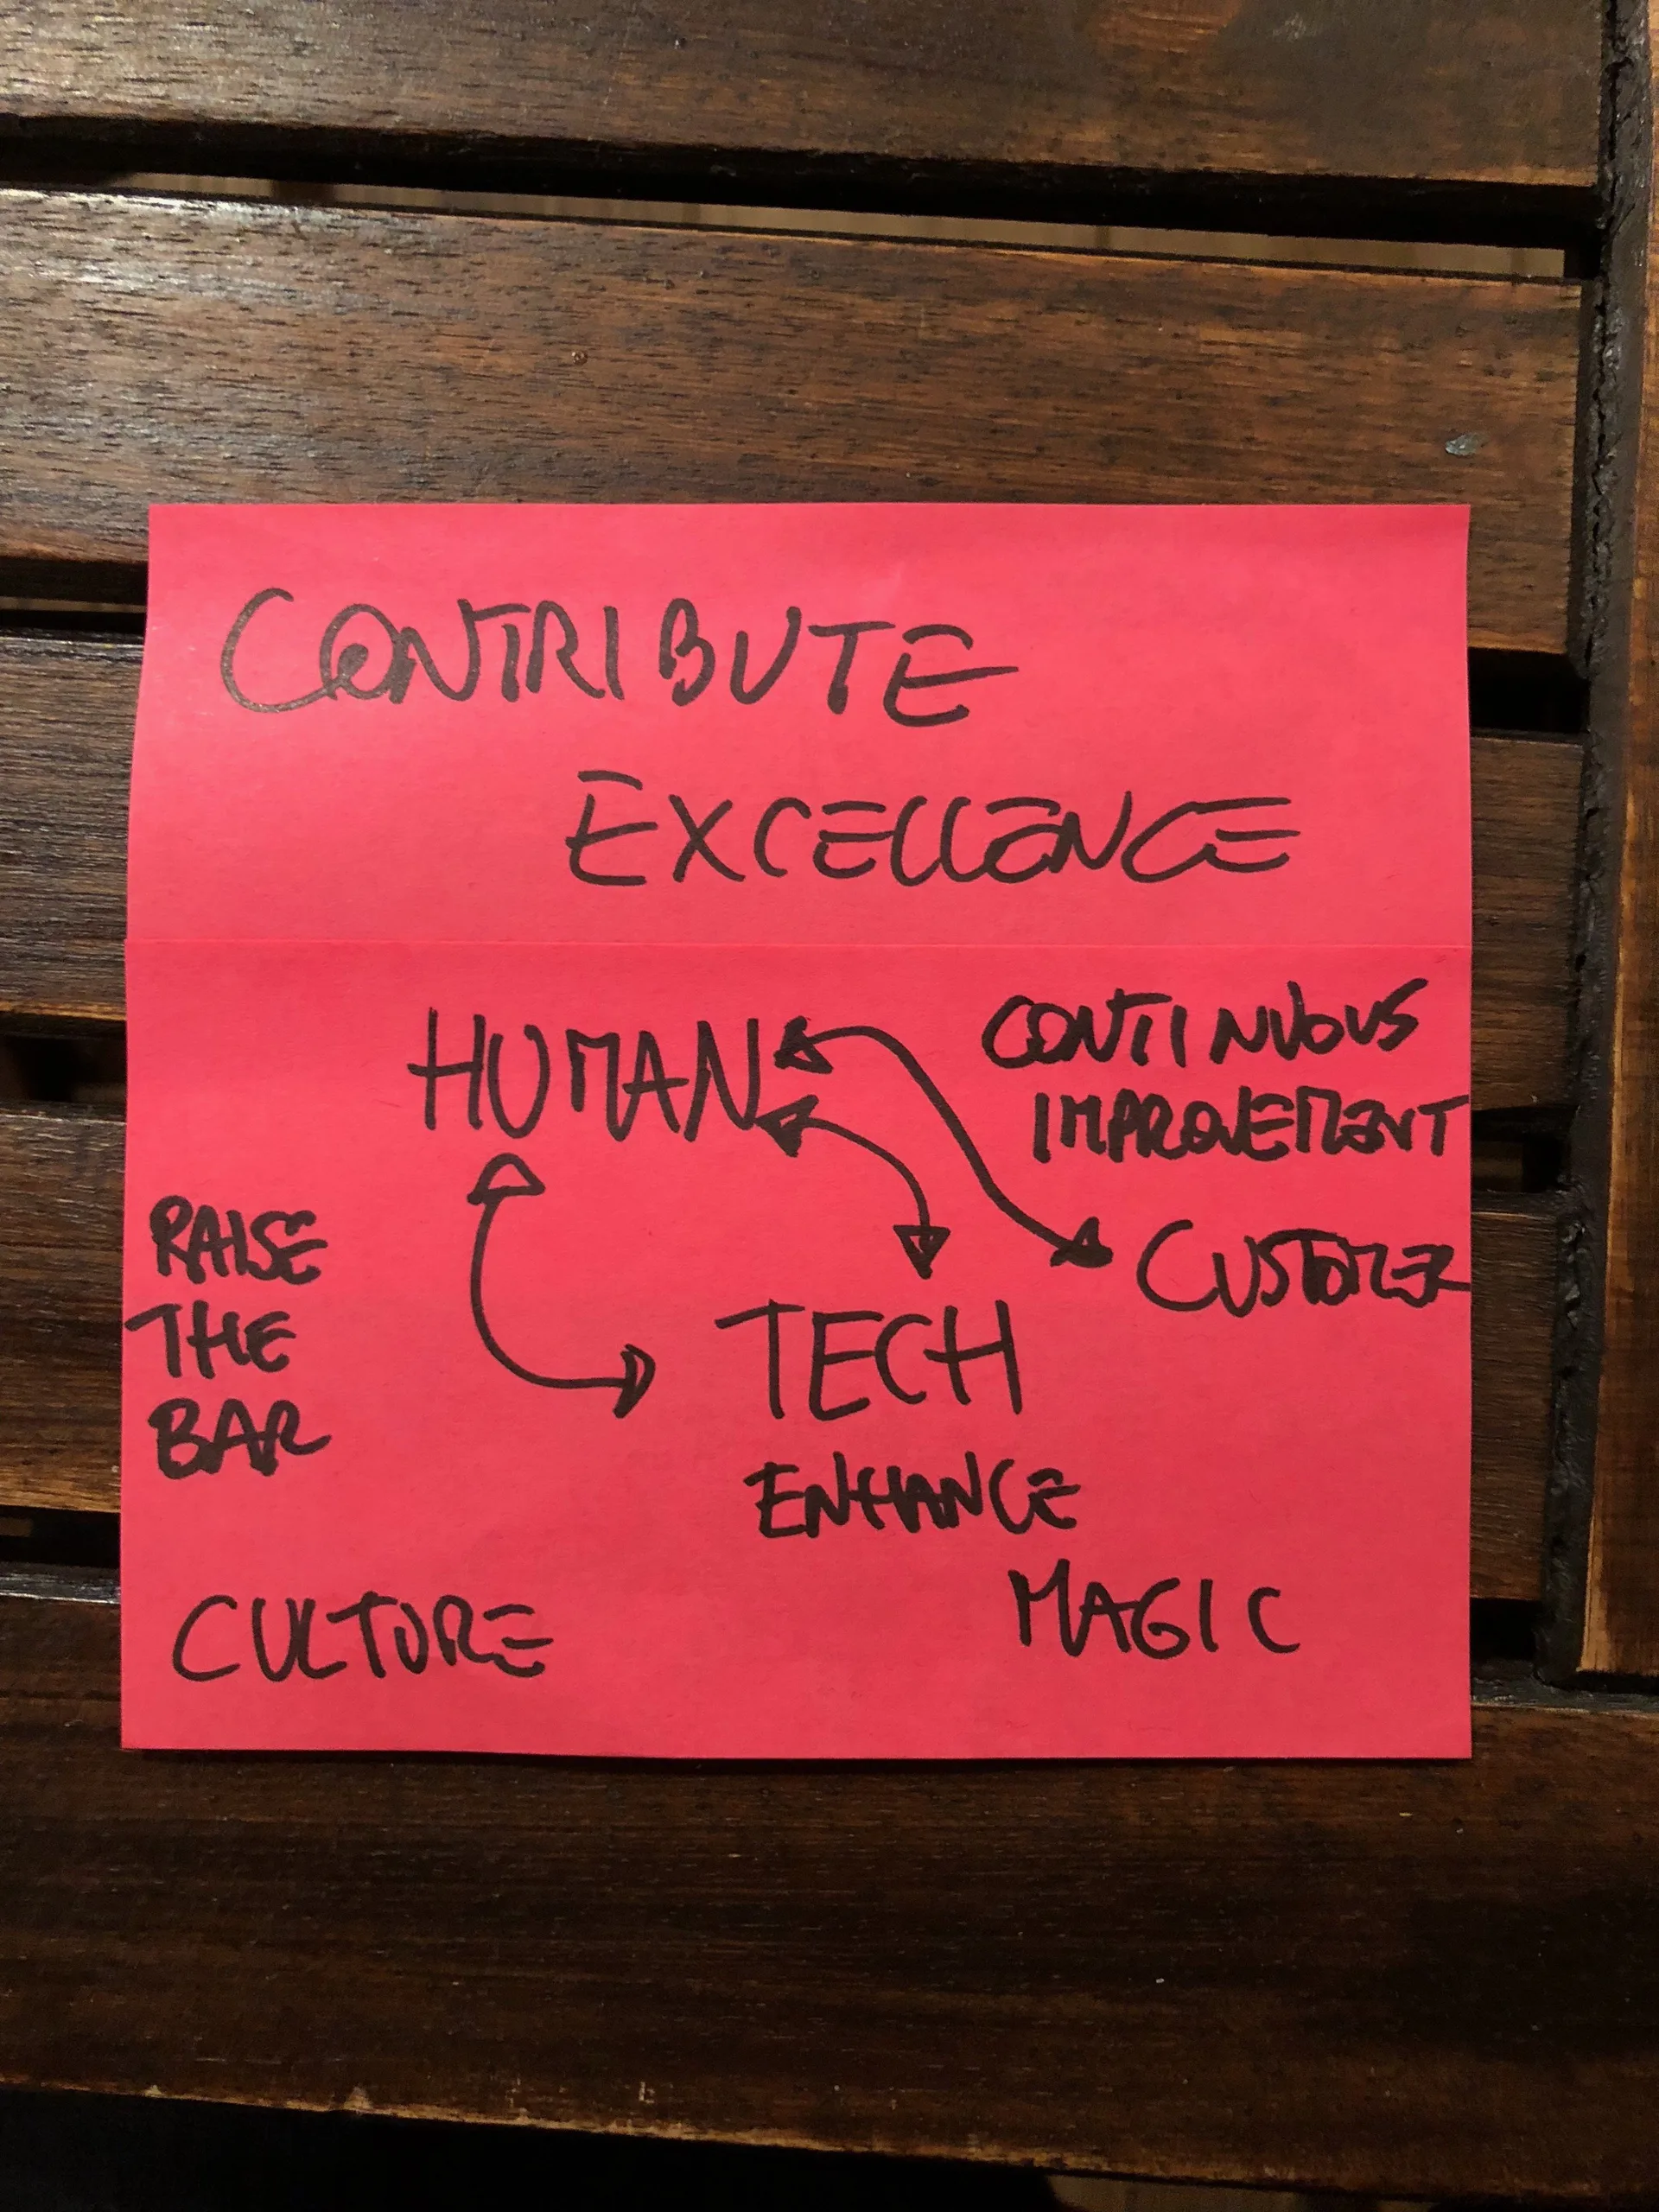 CONTRIBUTE
EXCELLENCE
HUMAN
CONTINUOUS
IMPROVEMENT
CUSTOMER
RAISE
THE
BAR
TECH
ENHANCE
MAGIC
CULTURE